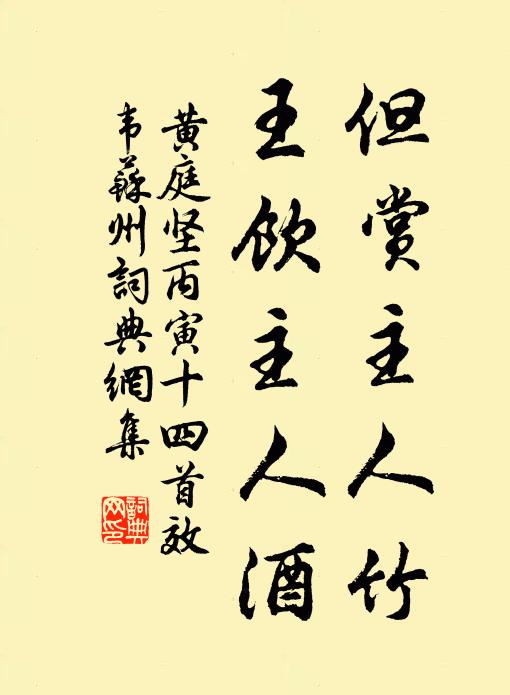 但赏主人竹
王飲主人酒
黄庭坚丙寅十四首效
韦蘇州詞典網集
詞典
网印